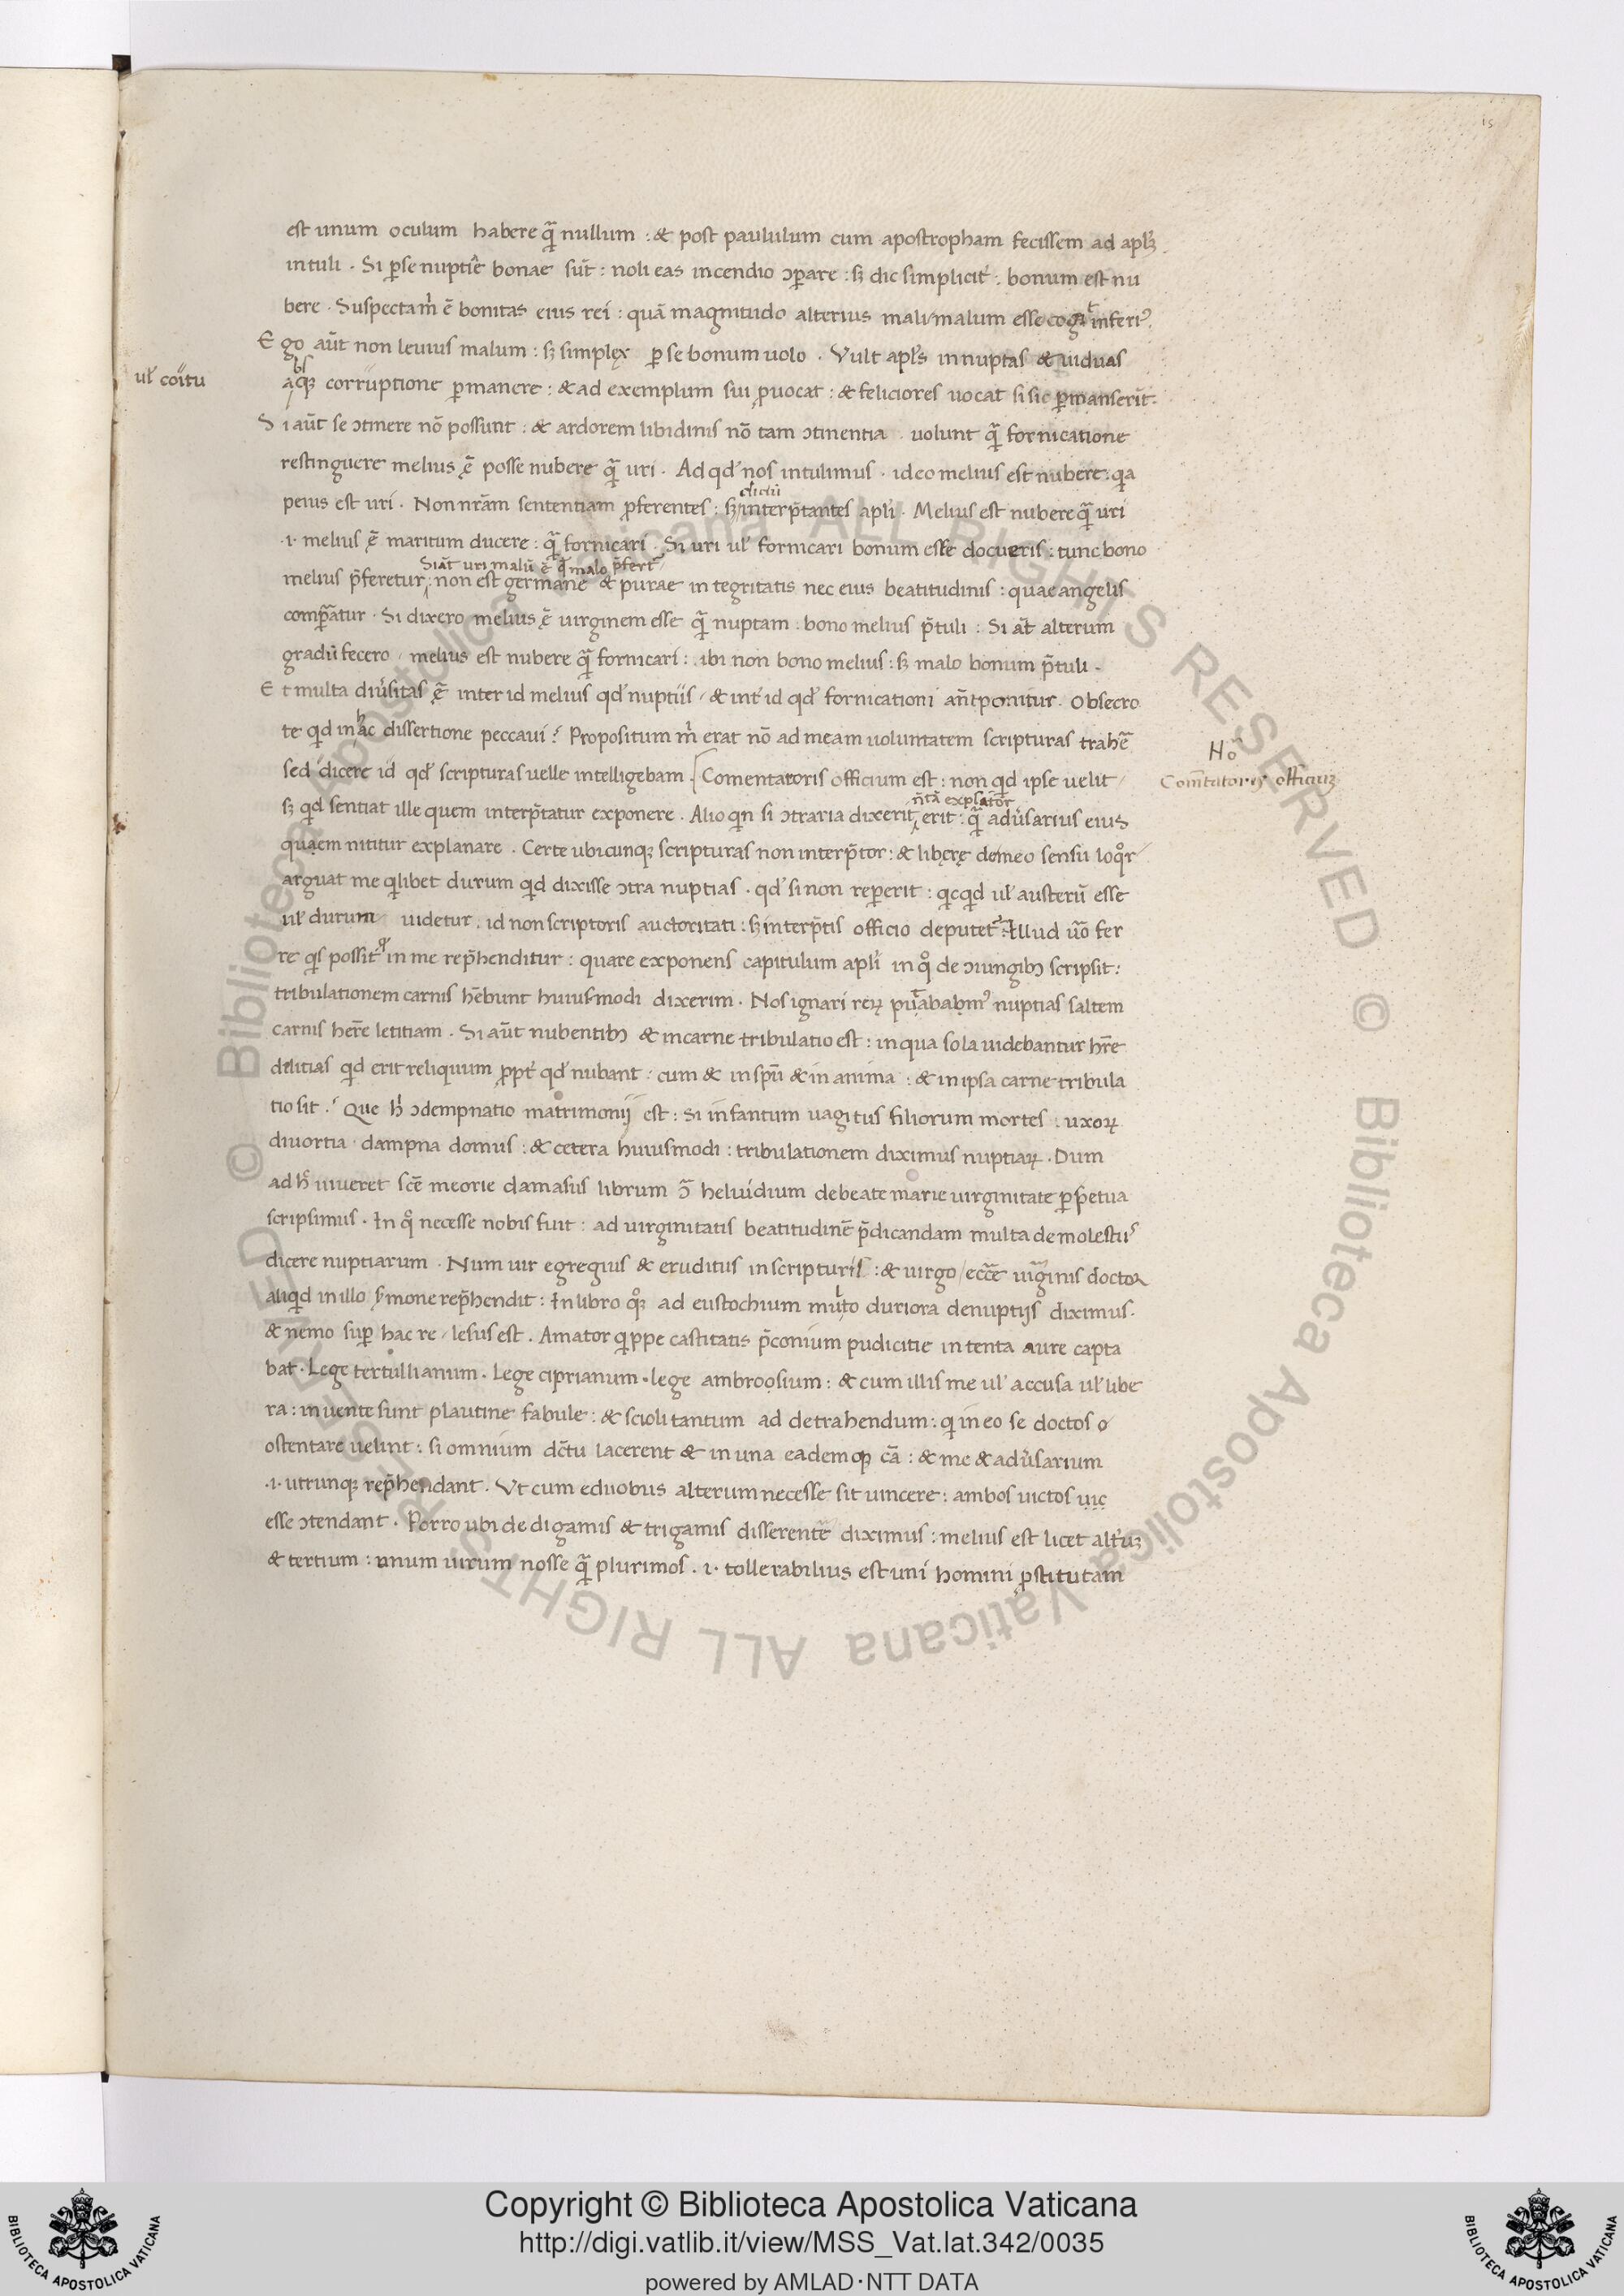 15
est unum oculum habere q̃ nullum : & post paululum cum apostropham fecissem ad apl'ꝫ
intuli . Si ꝑse nuptię bonae sūt : noli eas incendio ↄꝑare : sꝫ dic simplicit' . bonum est nu
bere . Suspecta m' ē bonitas eius rei : quā magnitudo alterius mali malum esse cogit inferi'.
Ego aūt non leuius malum : sꝫ simplex ꝑ se bonum uolo . Vult apl's innuptas & uiduas
ul' coitu
absqꝫ corruptione ꝑmanere : & ad exemplum sui ꝓuocat : & feliciores uocat si sic ꝑmanserīt .
Si aūt se ↄtinere nō possunt : & ardorem libidinis nō tam ↄtinentia uolunt q̃ fornicatione
restinguere melius ē posse nubere q̃ uri . Ad qd' nos intulimus . ideo melius est nubere : qa
peius est uri . Non nr̄am sententiam ꝓferentes : sꝫ dictū interp̄tantes apl'i . Melius est nubere q̃ uri
.i. melius ē maritum ducere : q̃ fornicari . Si uri ul' fornicari bonum esse docueris : tunc bono
Si āt uri malū ē q̃ malo p̄fert'
melius p̄feretur ; non est germane & purae integritatis nec eius beatitudinis : quae angelis
comparatur . Si dixero melius ē uirginem esse q̃ nuptam : bono melius p̄tuli : Si āt alterum
gradū fecero / melius est nubere q̃ fornicari : ibi non bono melius : sꝫ malo bonum p̄tuli .
Et multa diu'sitas ē inter id melius qd' nuptiis / & int' id qd' fornicationi an̄tponitur . Obsecro
te qd in hac dissertione peccaui ? Propositum m' erat nō ad meam uoluntatem scripturas trahē
sed dicere id qd' scripturas uelle intelligebam . Comentatoris officium est : non qd ipse uelit /
Ho
Com̄tatoris officiuꝫ
n̄ tā explāator
sꝫ qd sentiat ille quem interp̄tatur exponere . Alioqn si ↄtraria dixerit , erit : q̃ adu'sarius eius
quaem nititur explanare . Certe ubicunqꝫ scripturas non interp̄tor : & libere de meo sensu loqor /
arguat me qlibet durum qd dixisse ↄtra nuptias . qd' si non reꝑerit : qcqd ul' austerū esse
ul' durum uidetur . id non scriptoris auctoritati : sꝫ interp̄tis officio deputet . Illud u'o fer
re qs possit qr in me rep̄henditur : quare exponens capitulum apl'i in qo de ↄiungibꝫ scripsit :
tribulationem carnis hēbunt huiusmodi dixerim . Nos ignari reꝝ putabam' nuptias saltem
carnis hēre letitiam . Si aūt nubentibꝫ & in carne tribulatio est : in qua sola uidebantur hr̄e
delitias qd erit reliquum ꝓpt' qd' nubant : cum & in spū & in anima : & in ipsa carne tribula
tio sit ? Que h' ↄdempnatio matrimonij est : si infantum uagitus filiorum mortes : uxoꝝ
diuortia dampna domus : & cetera huiusmodi : tribulationem diximus nuptiaꝝ . Dum
ad h' uiueret scē meorie damasus librum ↄ̄ heluidium de beate marie uirginitate ꝑpetua
scripsimus . In qo necesse nobis fuit : ad uirginitatis beatitudinē p̄dicandam multa de molestiis
dicere nuptiarum . Num uir egregius & eruditus in scripturis : & uirgo / ecc̄e uirginis doctor
aliqd in illo s'mone rep̄hendit : In libro qoqꝫ ad eustochium multo duriora de nuptijs diximus .
& nemo suꝑ hac re / lesus est . Amator qppe castitatis p̄conium pudicitie intenta aure capta
bat . Lege tertullianum . Lege ciprianum . lege ambrosium : & cum illis me ul' accusa ul' libe
ra : inuente sunt plautine fabule : & scioli tantum ad detrahendum : qi in eo se doctos o
ostentare uelint : si omnium dc̄tu lacerent & in una eademqꝫ cā : & me & adu'sarium
.i. utrunqꝫ rep̄hendant . Vt cum e duobus alterum necesse sit uincere : ambos uictos uic
esse ↄtendant . Porro ubi de digamis & trigamis disserentē diximus : melius est licet alt'uꝫ
& tertium : unum uirum nosse q̃ plurimos . i. tollerabilius est uni homini ꝓstitutam
© Biblioteca Apostolica Vaticana ALL RIGHTS RESERVED © Biblioteca Apostolica Vaticana ALL RIGHTS RESERVED
Copyright © Biblioteca Apostolica Vaticana
http://digi.vatlib.it/view/MSS_Vat.lat.342/0035
powered by AMLAD·NTT DATA
BIBLIOTECA APOSTOLICA VATICANA
BIBLIOTECA APOSTOLICA VATICANA